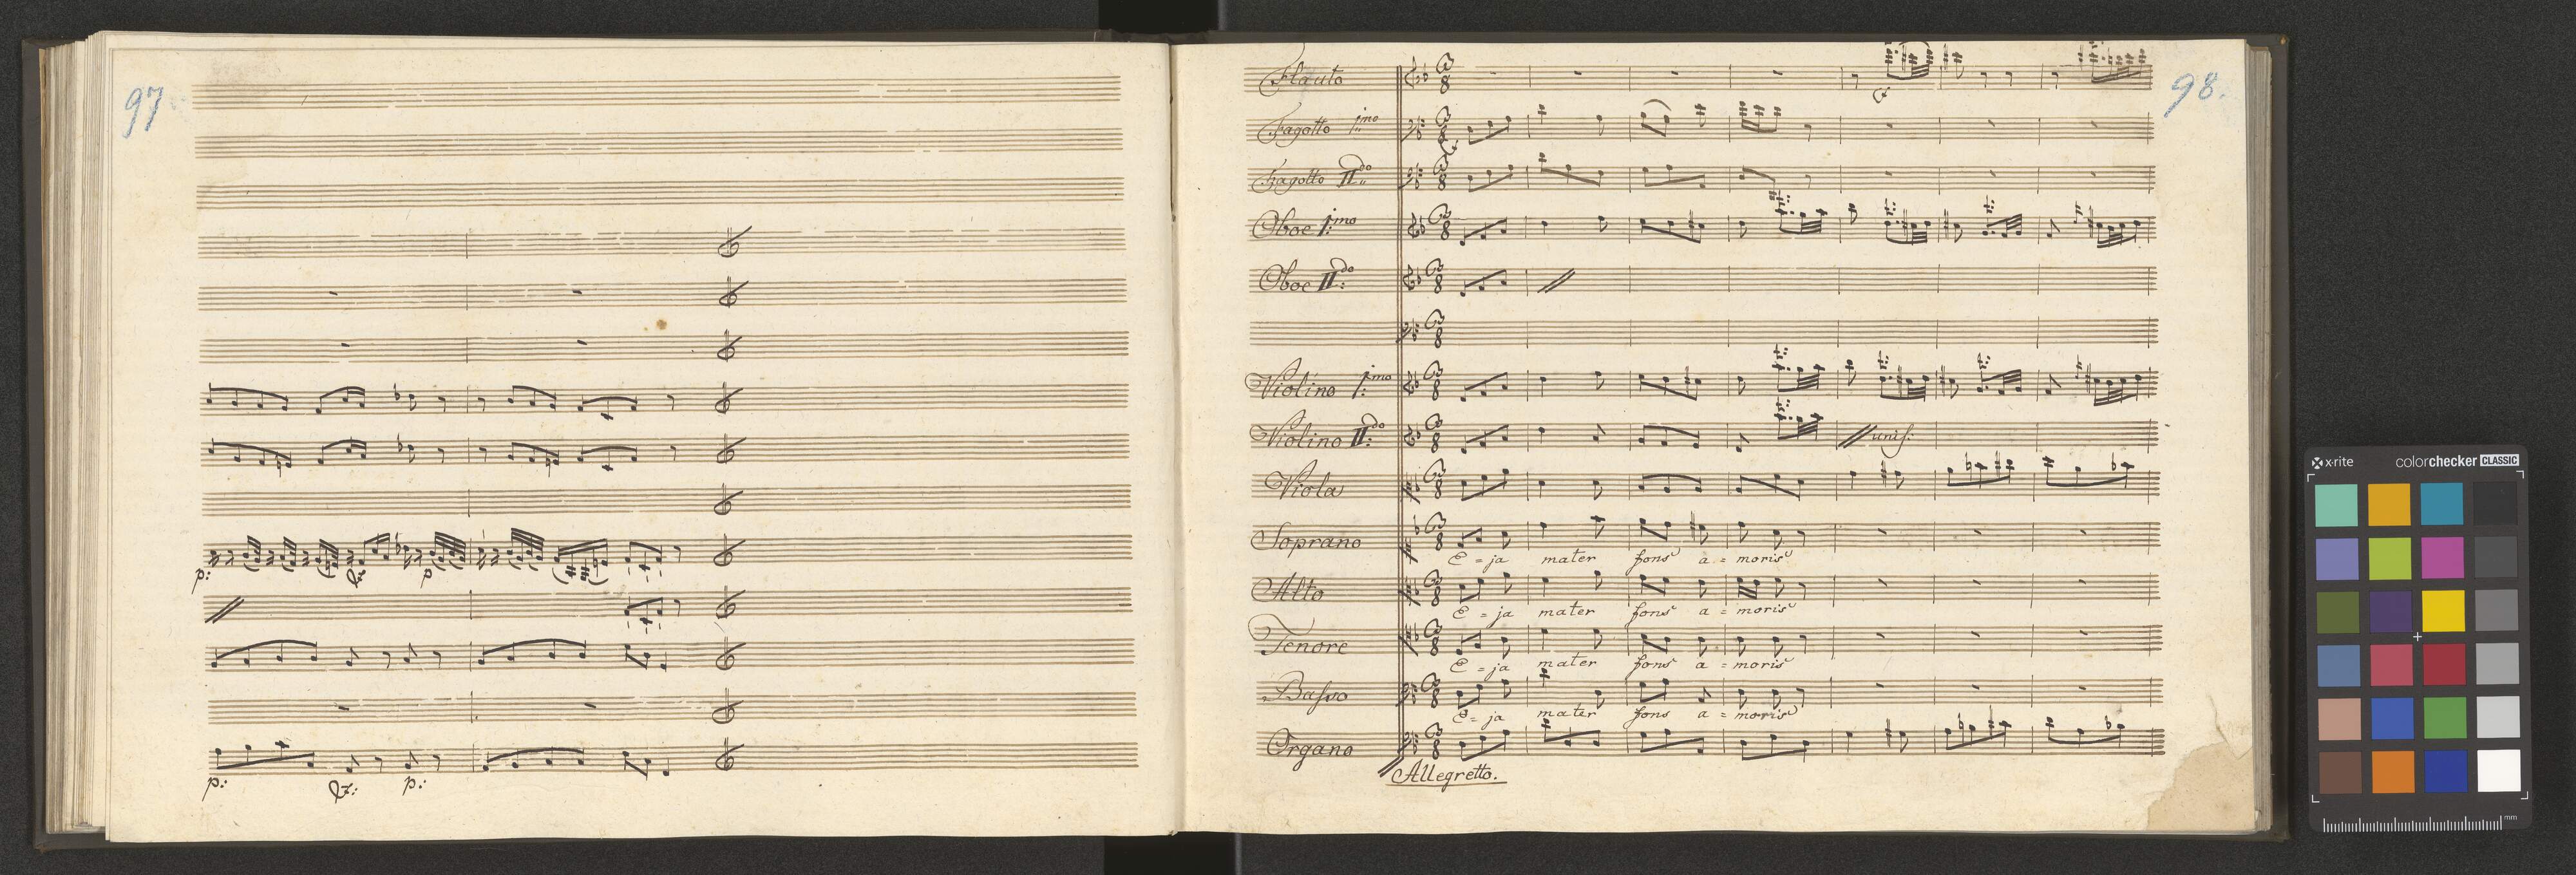 97
p: fz: p
p: fz: p:
98.
Flauto
Fagotto 1:mo
Fagotto II:do
Oboe 1:mo
Oboe II:do
Violino 1:mo
Violino II:do unis:
Viola
Soprano
E = ja mater fons a = moris
Alto
E = ja mater fons a = moris
Tenore
E = ja mater fons a = moris
Basso
E = ja mater fons a = moris
Organo
Allegretto.
x-rite colorchecker CLASSIC
mm